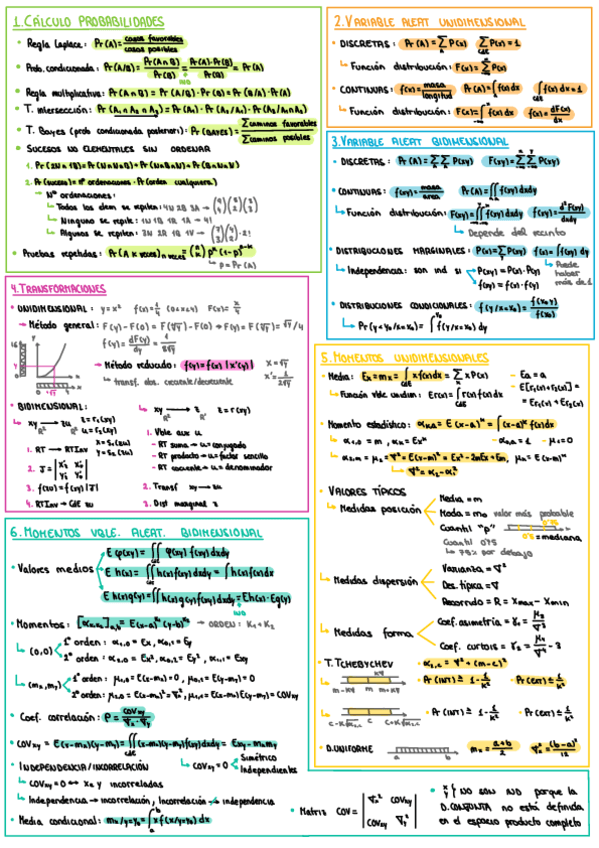 1. CÁLCULO PROBABILIDADES
• Regla Laplace: Pr(A) = casos favorables / casos posibles
• Prob. condicionada: Pr(A/B) = Pr(A∩B) / Pr(B) = Pr(A)·Pr(B) / Pr(B) = Pr(A)
IND
• Regla multiplicativa: Pr(A∩B) = Pr(A/B)·Pr(B) = Pr(B/A)·Pr(A)
• T. intersección: Pr(A₁∩A₂∩A₃) = Pr(A₁)·Pr(A₂/A₁)·Pr(A₃/A₁∩A₂)
• T. Bayes (prob condicionada posteriori): Pr(BAYES) = Σcaminos favorables / Σcaminos posibles
• SUCESOS NO ELEMENTALES SIN ORDENAR
2. Pr(suceso) = nº ordenaciones · Pr(orden cualquiera)
↳ Nº ordenaciones:
↳ Todos los elem se repiten: 4N 2B 3A →
↳ Ninguno se repite: 1N 1B 1R 1A → 4!
↳ Algunos se repiten: 3N 2R 1B 1V →
• Pruebas repetidas: Pr(A k veces) n veces = (n k) pᵏ (1-p)ⁿ⁻ᵏ
↳ p = Pr(A)
2. VARIABLE ALEAT UNIDIMENSIONAL
• DISCRETAS: Pr(A) = Σ P(x) Σ P(x) = 1
↳ Función distribución: F(x) = Σ P(x)
• CONTINUAS: f(x) = masa / longitud Pr(A) = ∫ f(x) dx ∫ f(x) dx = 1
↳ Función distribución: F(x) = ∫ f(x) dx f(x) = dF(x) / dx
3. VARIABLE ALEAT BIDIMENSIONAL
• DISCRETAS: Pr(A) = ΣΣ P(xy) F(xy) = ΣΣ P(xy)
• CONTINUAS: f(xy) = masa / area Pr(A) = ∫∫ f(xy) dxdy
↳ Función distribución: F(xy) = ∫∫ f(xy) dxdy f(xy) = d²F(xy) / dxdy
↳ Depende del recinto
• DISTRIBUCIONES MARGINALES: P(x) = Σ P(xy) f(x) = ∫ f(xy) dy
↳ Independencia: son ind si P(xy) = P(x)·P(y)
f(xy) = f(x)·f(y)
↳ Puede haber más de 1
• DISTRIBUCIONES CONDICIONALES: f(y/x=x₀) = f(x₀ y) / f(x₀)
4. TRANSFORMACIONES
• UNIDIMENSIONAL: y = x² f(x) = 1/4 (0<x<4) F(x) = x/4
↳ Método general: F(y) - F(0) = F(√y) - F(0) → F(y) = F(√y) = √y/4
f(y) = dF(y) / dy = 1 / 8√y
↳ Método reducido: f(y) = f(x) |x'(y)|
x = √y
x' = 1 / 2√y
↳ transf. obs. creciente/decreciente
• BIDIMENSIONAL:
1. RT → RTInv
3. f(zu) = f(xy) |J|
4. RTInv → CdE zu
1. Vble aux u
- RT suma → u = conjugado
- RT producto → u = factor sencillo
- RT cociente → u = denominador
2. Transf xy → zu
3. Dist marginal z
5. MOMENTOS UNIDIMENSIONALES
• Media: Ex = mx = ∫ x f(x) dx = Σ x P(x)
- Ea = a
↳ Función vble unidim: Er(x) = ∫ r(x) f(x) dx
- E[r₁(x) + r₂(x)] =
= Er₁(x) + Er₂(x)
• Momento estadístico:
• VALORES TÍPICOS
↳ Medidas posición
Media = m
Moda = mo valor más probable
Cuantil "p"
0'5 = mediana
Cuantil 0'75
↳ 75% por debajo
↳ Medidas dispersión
Varianza = ∇²
Des. típica = ∇
Recorrido = R = xmax - xmin
↳ Medidas forma
Coef. asimetría = γ₁ = μ₃ / ∇³
Coef. curtosis = γ₂ = μ₄ / ∇⁴ - 3
• T. TCHEBYCHEV
Pr(INT) ≥ 1 - 1/k² Pr(EXT) ≤ 1/k²
• D. UNIFORME
a b
mx = (a+b) / 2 ∇x² = (b-a)² / 12
6. MOMENTOS VBLE. ALEAT. BIDIMENSIONAL
• Valores medios
E φ(xy) = ∫∫ φ(xy) f(xy) dxdy
E h(x) = ∫∫ h(x) f(xy) dxdy = ∫ h(x) f(x) dx
E h(x) g(y) = ∫∫ h(x) g(y) f(xy) dxdy = Eh(x)·Eg(y)
IND
• Momentos: → ORDEN: K₁+K₂
↳ (0,0)
1º orden: α₁,₀ = Ex, α₀,₁ = Ey
2º orden: α₂,₀ = Ex², α₀,₂ = Ey², α₁,₁ = Exy
↳ (mx, my)
1º orden: μ₁,₀ = E(x-mx) = 0, μ₀,₁ = E(y-my) = 0
2º orden: μ₂,₀ = E(x-mx)² = ∇x², μ₁,₁ = E(x-mx)(y-my) = COVxy
• Coef. correlación: ρ = COVxy / ∇x ∇y
• COVxy = E(x-mx)(y-my) = ∫∫ (x-mx)(y-my) f(xy) dxdy = Exy - mx my
• INDEPENDENCIA/INCORRELACIÓN
↳ COVxy = 0
Simétrico
Independientes
↳ COVxy = 0 ↔ x e y incorreladas
↳ Independencia → incorrelación, Incorrelación ↛ independencia
• Media condicional: mx/y=y₀ = ∫ x f(x/y=y₀) dx
• Matriz COV = | ∇x² COVxy |
| COVxy ∇y² |
• x y } NO SON IND porque la
D. CONJUNTA no está definida
en el espacio producto completo